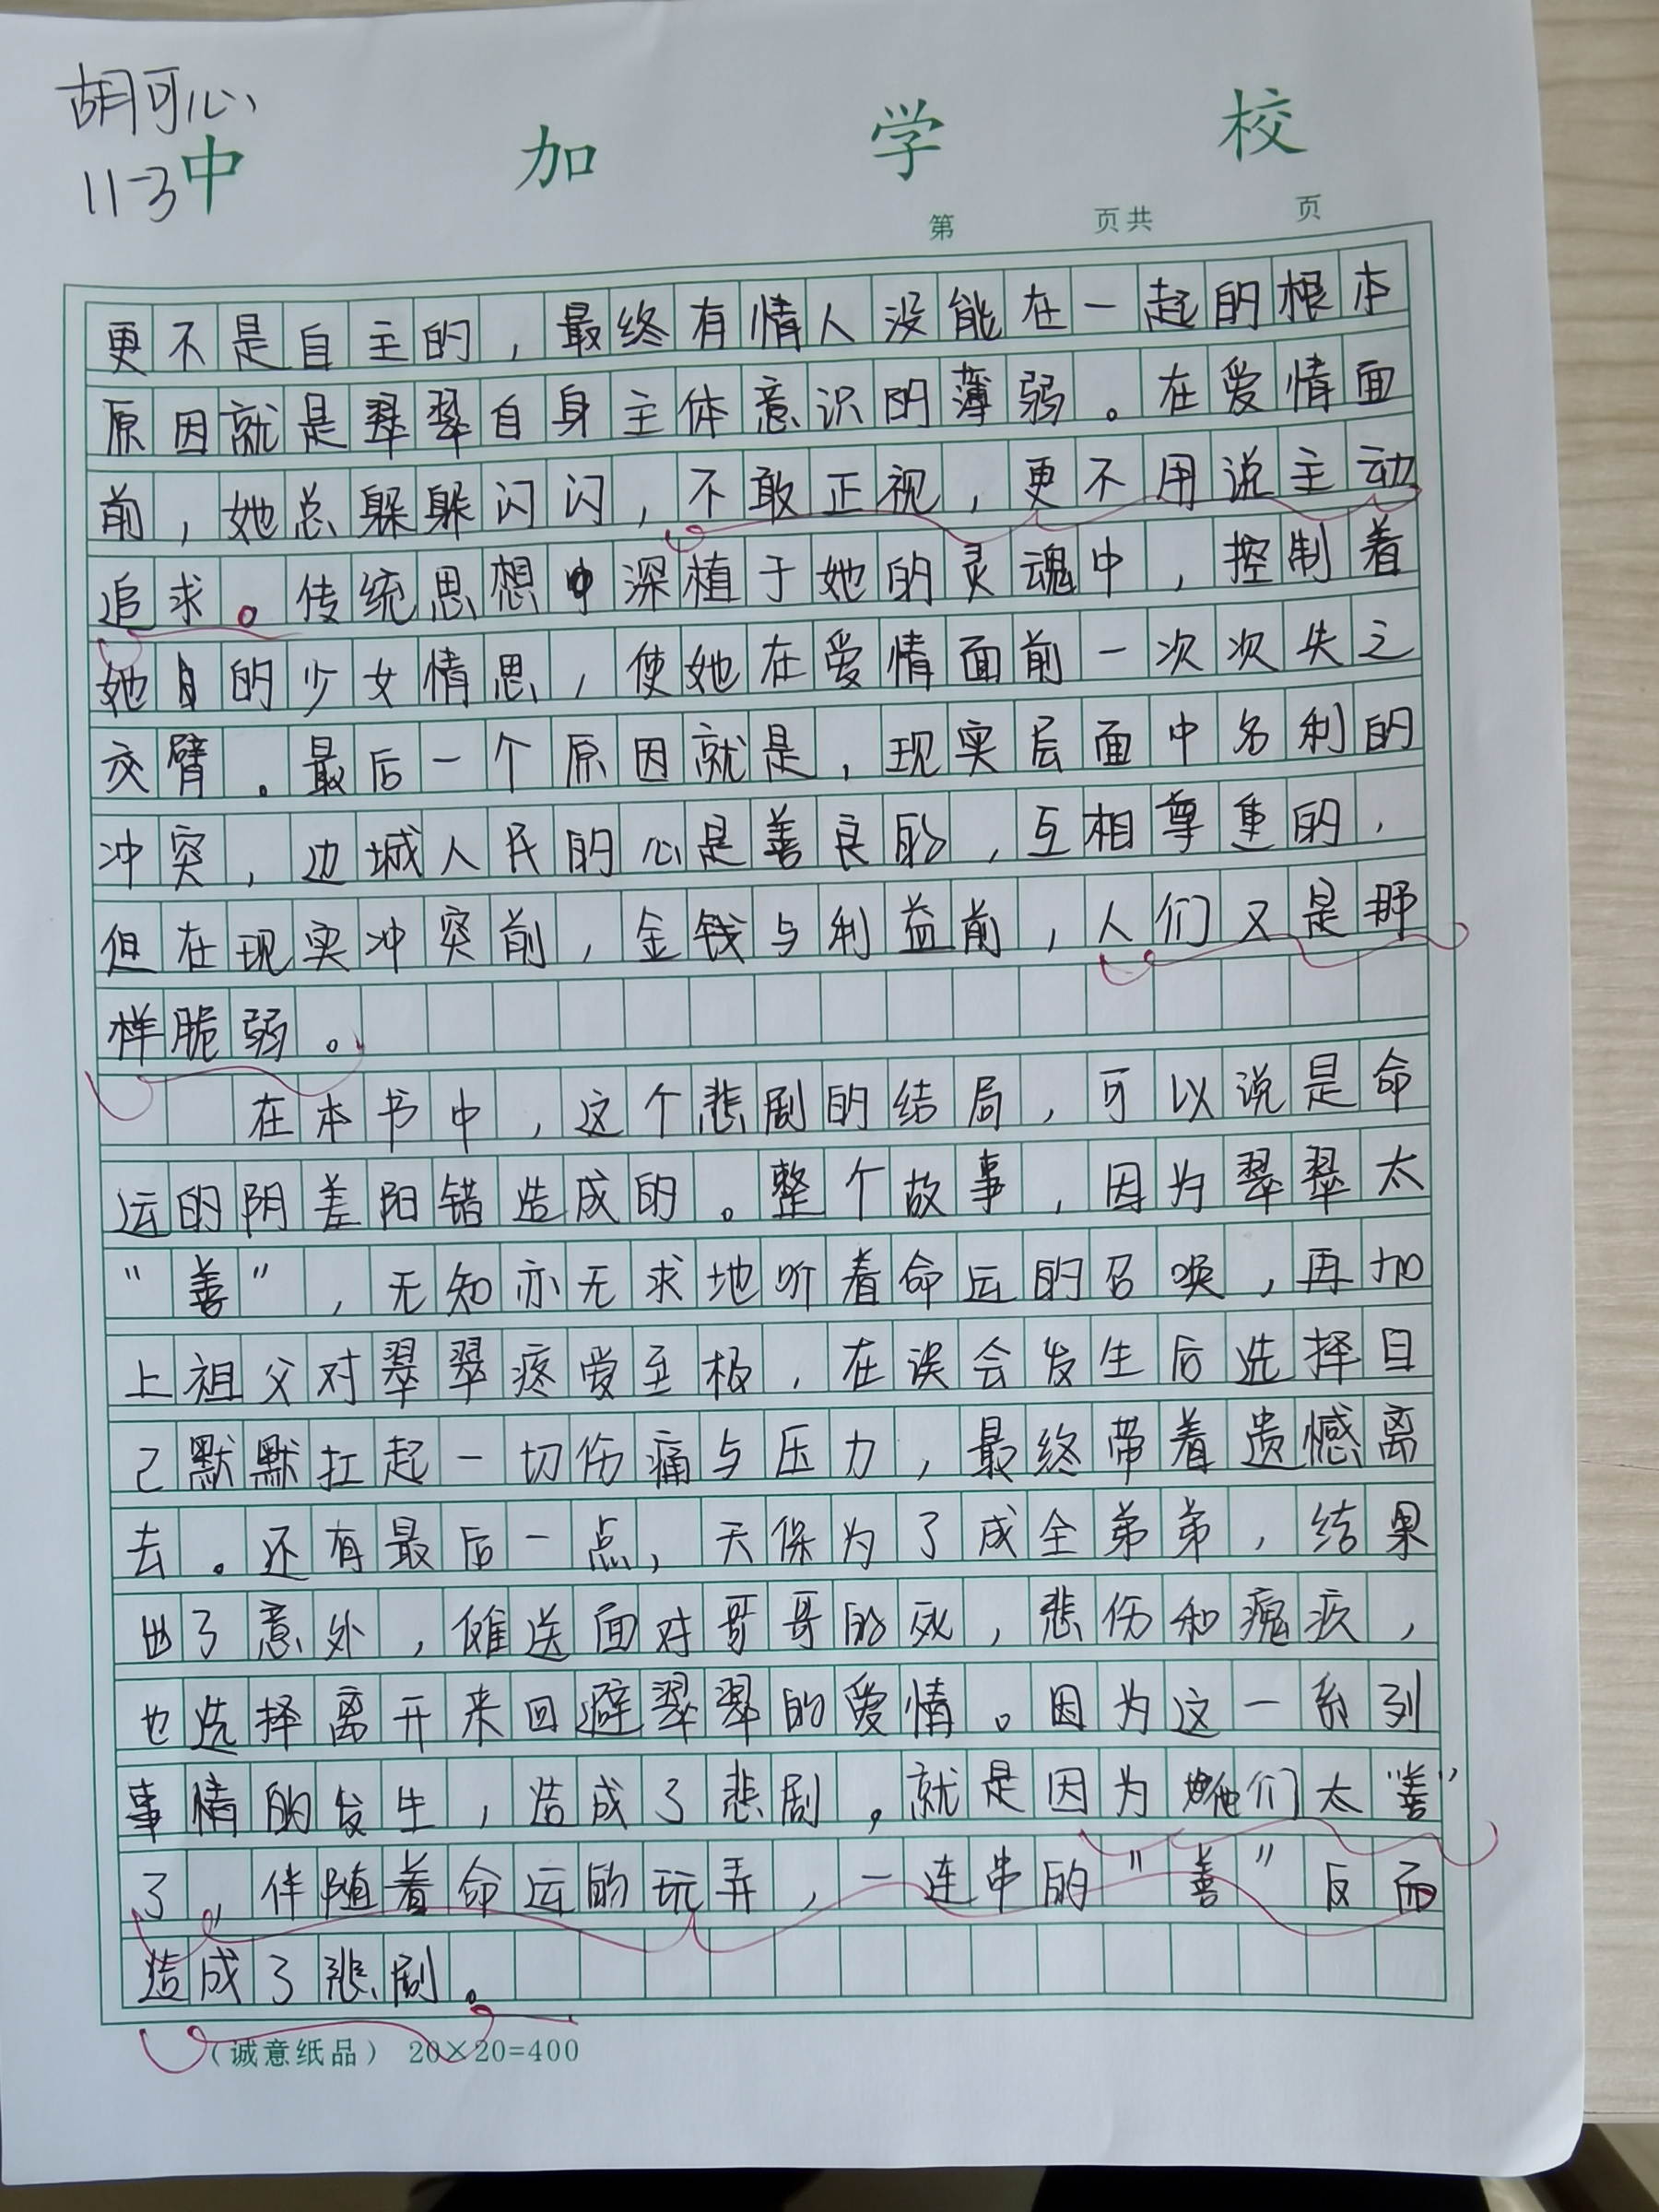 胡可心
11-3
中加学校
第 页共 页
更不是自主的，最终有情人没能在一起的根本
原因就是翠翠自身主体意识的薄弱。在爱情面
前，她总躲躲闪闪，不敢正视，更不用说主动
追求。传统思想深植于她的灵魂中，控制着
她的少女情思，使她在爱情面前一次次失之
交臂。最后一个原因就是，现实层面中名利的
冲突，边城人民的心是善良的，互相尊重的，
但在现实冲突前，金钱与利益前，人们又是那
样脆弱。
在本书中，这个悲剧的结局，可以说是命
运的阴差阳错造成的。整个故事，因为翠翠太
“善”，无知亦无求地听着命运的召唤，再加
上祖父对翠翠疼爱至极，在误会发生后选择自
己默默扛起一切伤痛与压力，最终带着遗憾离
去。还有最后一点，天保为了成全弟弟，结果
出了意外，傩送面对哥哥的死，悲伤和疚，
也选择离开来回避翠翠的爱情。因为这一系列
事情的发生，造成了悲剧，就是因为他们太“善”
了，伴随着命运的玩弄，一连串的“善”反而
造成了悲剧。
（诚意纸品） 20×20=400